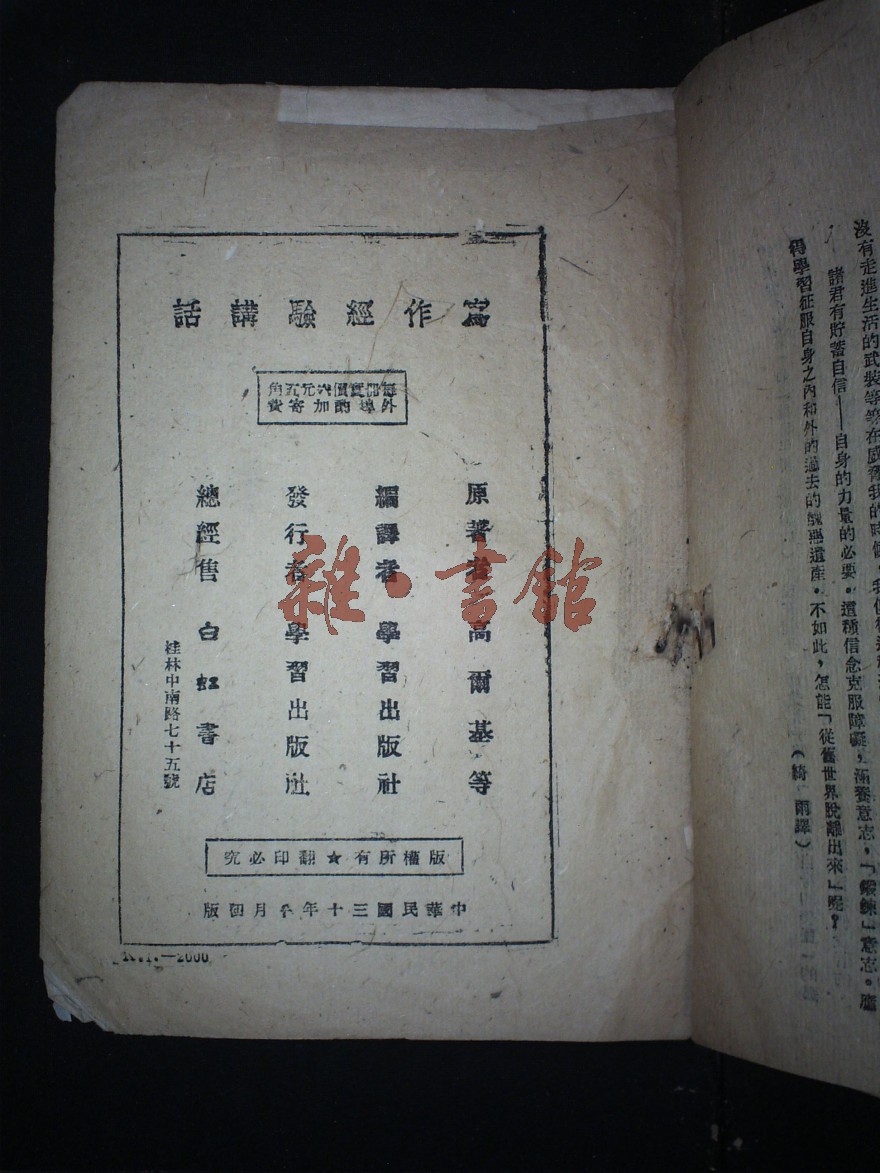 寫作經驗講話
每冊實價六元五角
外埠酌加寄費
原著者 高爾基等
編譯者 學習出版社
發行者 學習出版社
總經售 白虹書店
桂林中南路七十五號
版權所有★翻印必究
中華民國三十年 月初版
1.—2000
雜·書館
沒有走進生活的武裝等等在威脅我的時候，我
諸君有貯蓄自信——自身的力量的必要。這種信念克服障礙，涵養意志，「鍛鍊」意志。應
得學習征服自身之內和外的過去的醜惡遺產。不如此，怎能「從舊世界脫離出來」呢？
（綺雨譯）